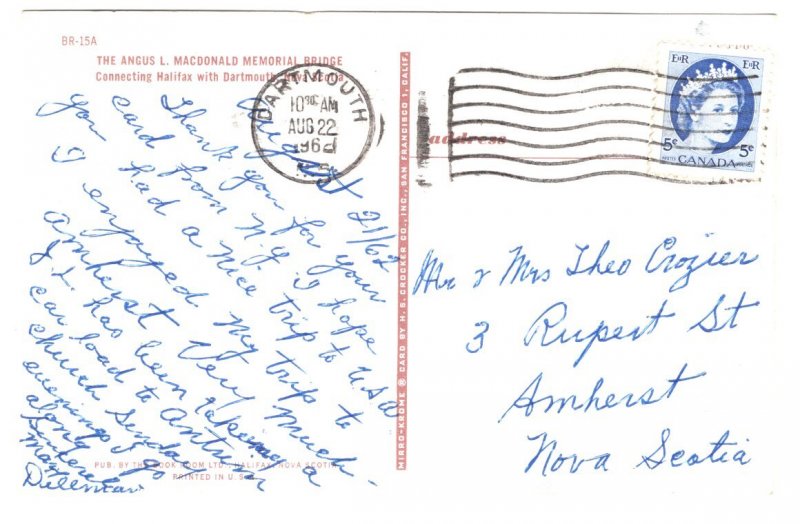 BR-15A
THE ANGUS L. MACDONALD MEMORIAL BRIDGE
Connecting Halifax with Dartmouth, Nova Scotia
August 21/62
Thank you for your
card from N.Y. I hope
you had a nice trip to USA
I enjoyed my trip to
Amherst Very much.
has been
car load to
church Sunday
evenings so
along
Sincerely
Dillman
PUB. BY THE BOOK ROOM LTD., HALIFAX, NOVA SCOTIA
PRINTED IN U.S.A.
MIRRO-KROME ® CARD BY H. S. CROCKER CO., INC., SAN FRANCISCO 1, CALIF.
DARTMOUTH
10 30 AM
AUG 22
1962
N.S.
address
EIIR EIIR
5c 5c
CANADA
Mr & Mrs Theo Crozier
3 Rupert St
Amherst
Nova Scotia